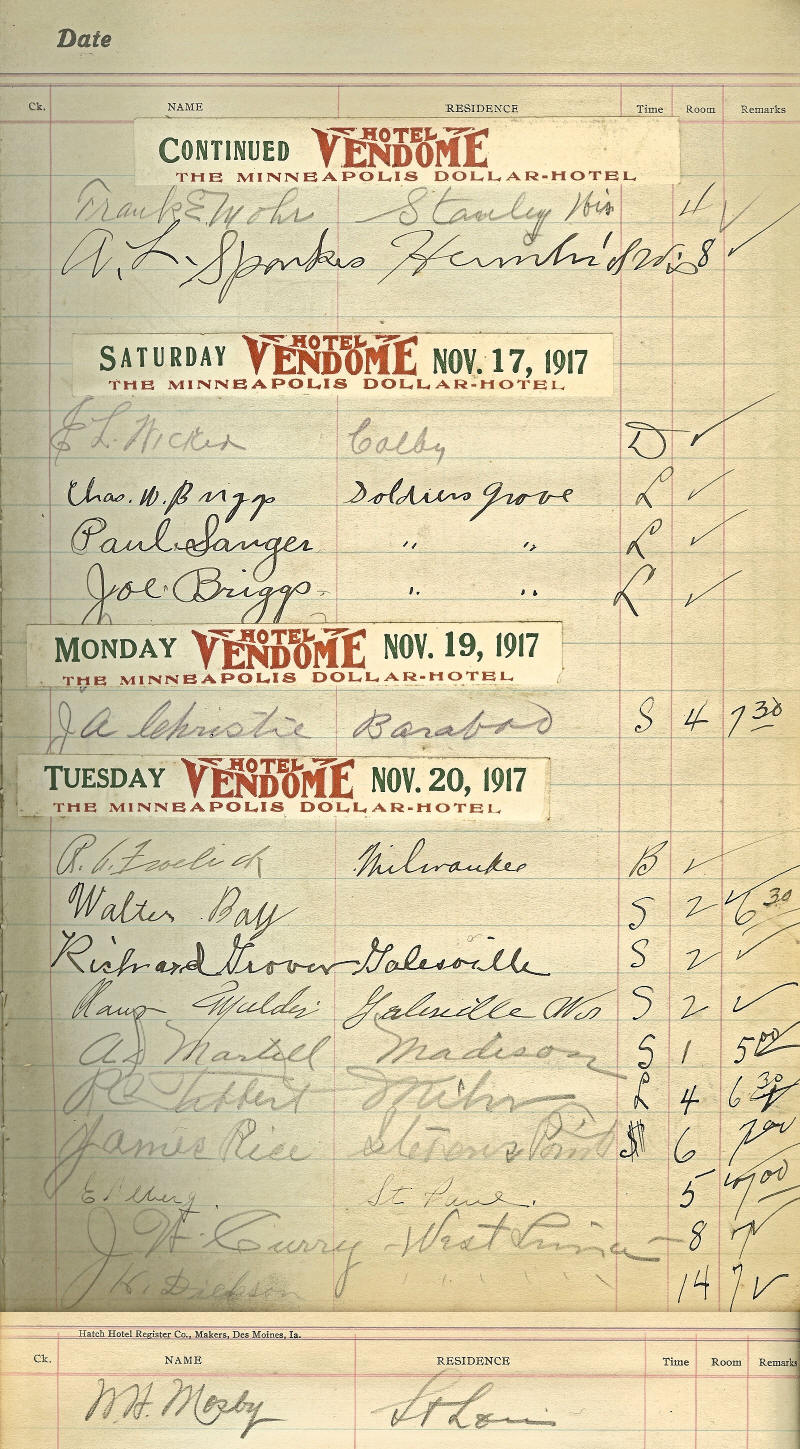 Date
Ck. NAME RESIDENCE Time Room Remarks
CONTINUED HOTEL VENDOME
THE MINNEAPOLIS DOLLAR-HOTEL
Frank E Mohr Stanley Wis 4 ✓
A. L. Sparks Wis 8 ✓
SATURDAY HOTEL VENDOME NOV. 17, 1917
THE MINNEAPOLIS DOLLAR-HOTEL
L. Wicker Colby D ✓
Chas. W. Briggs Soldiers Grove L ✓
Paul Sanger " " L ✓
Joe Briggs " " L ✓
MONDAY HOTEL VENDOME NOV. 19, 1917
THE MINNEAPOLIS DOLLAR-HOTEL
J A Christie Baraboo S 4 7 30
TUESDAY HOTEL VENDOME NOV. 20, 1917
THE MINNEAPOLIS DOLLAR-HOTEL
R. Froelick Milwaukee B ✓
Walter Bay S 2 6 30
Richard Grover Galesville S 2 ✓
Mulder Galesville Wis S 2 ✓
Martell Madison S 1 5 00
Tabbert Milw L 4 6 30
James Rice Stevens Point 6 7 00
E Alberg. St Paul. 5 7 00
J. H. Curry West Lima 8 7 ✓
J. H. Dickson " " 14 7 ✓
Hatch Hotel Register Co., Makers, Des Moines, Ia.
Ck. NAME RESIDENCE Time Room Remarks
W. H. Mosby St Louis